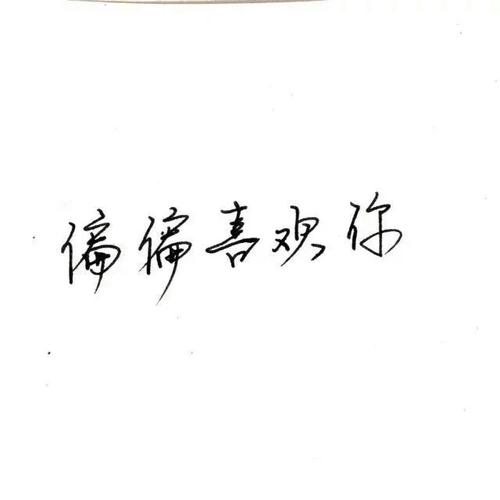 偏偏喜欢你